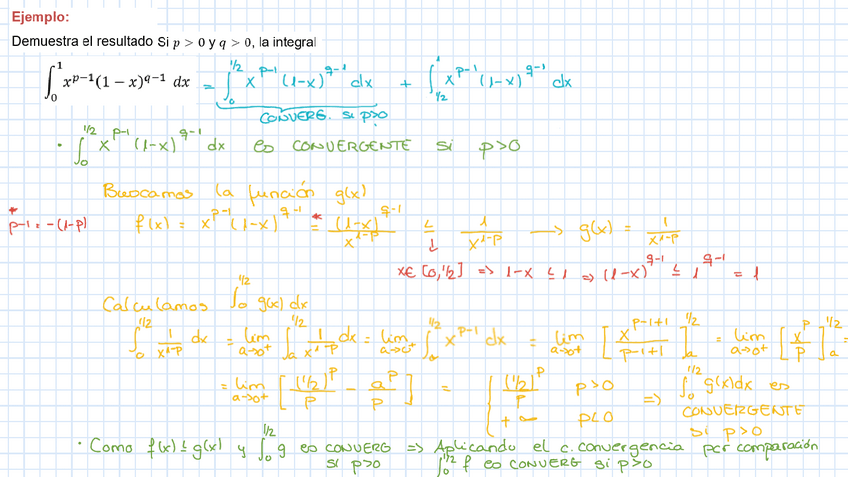 Ejemplo:
Demuestra el resultado Si p > 0 y q > 0, la integral
∫₀¹ x^{p−1}(1 − x)^{q−1} dx = ∫₀^{1/2} x^{p-1} (1-x)^{q-1} dx + ∫_{1/2}^1 x^{p-1} (1-x)^{q-1} dx
CONVERG. si p>0
· ∫₀^{1/2} x^{p-1} (1-x)^{q-1} dx es CONVERGENTE si p>0
Buscamos la función g(x)
* p-1 = -(1-p)
f(x) = x^{p-1} (1-x)^{q-1} =* (1-x)^{q-1} / x^{1-p} ≤ 1 / x^{1-p} → g(x) = 1 / x^{1-p}
↓
x∈ [0,1/2] => 1-x ≤ 1 => (1-x)^{q-1} ≤ 1^{q-1} = 1
Calculamos ∫₀^{1/2} g(x) dx
∫₀^{1/2} 1/x^{1-p} dx = lim_{a→0⁺} ∫_a^{1/2} 1/x^{1-p} dx = lim_{a→0⁺} ∫_a^{1/2} x^{p-1} dx = lim_{a→0⁺} [x^{p-1+1} / p-1+1]_a^{1/2} = lim_{a→0⁺} [x^p / p]_a^{1/2} =
= lim_{a→0⁺} [(1/2)^p / p - a^p / p] = { (1/2)^p / p p>0 => ∫₀^{1/2} g(x)dx es
+∞ p<0 CONVERGENTE
si p>0
· Como f(x) ≤ g(x) y ∫₀^{1/2} g es CONVERG => Aplicando el c. convergencia por comparación
si p>0 ∫₀^{1/2} f es CONVERG si p>0